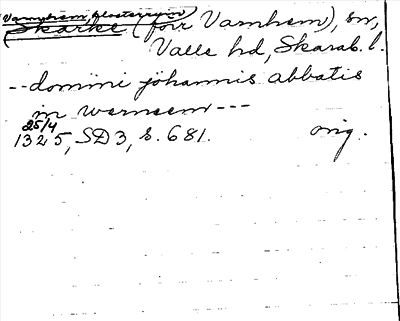 Varnhems klosterruin
Skarke (förr Varnhem), sn,
Valle hd, Skarab. l.
--domini johannis abbatis
in warnem ---
25/4
1325, SD3, s. 681. orig.